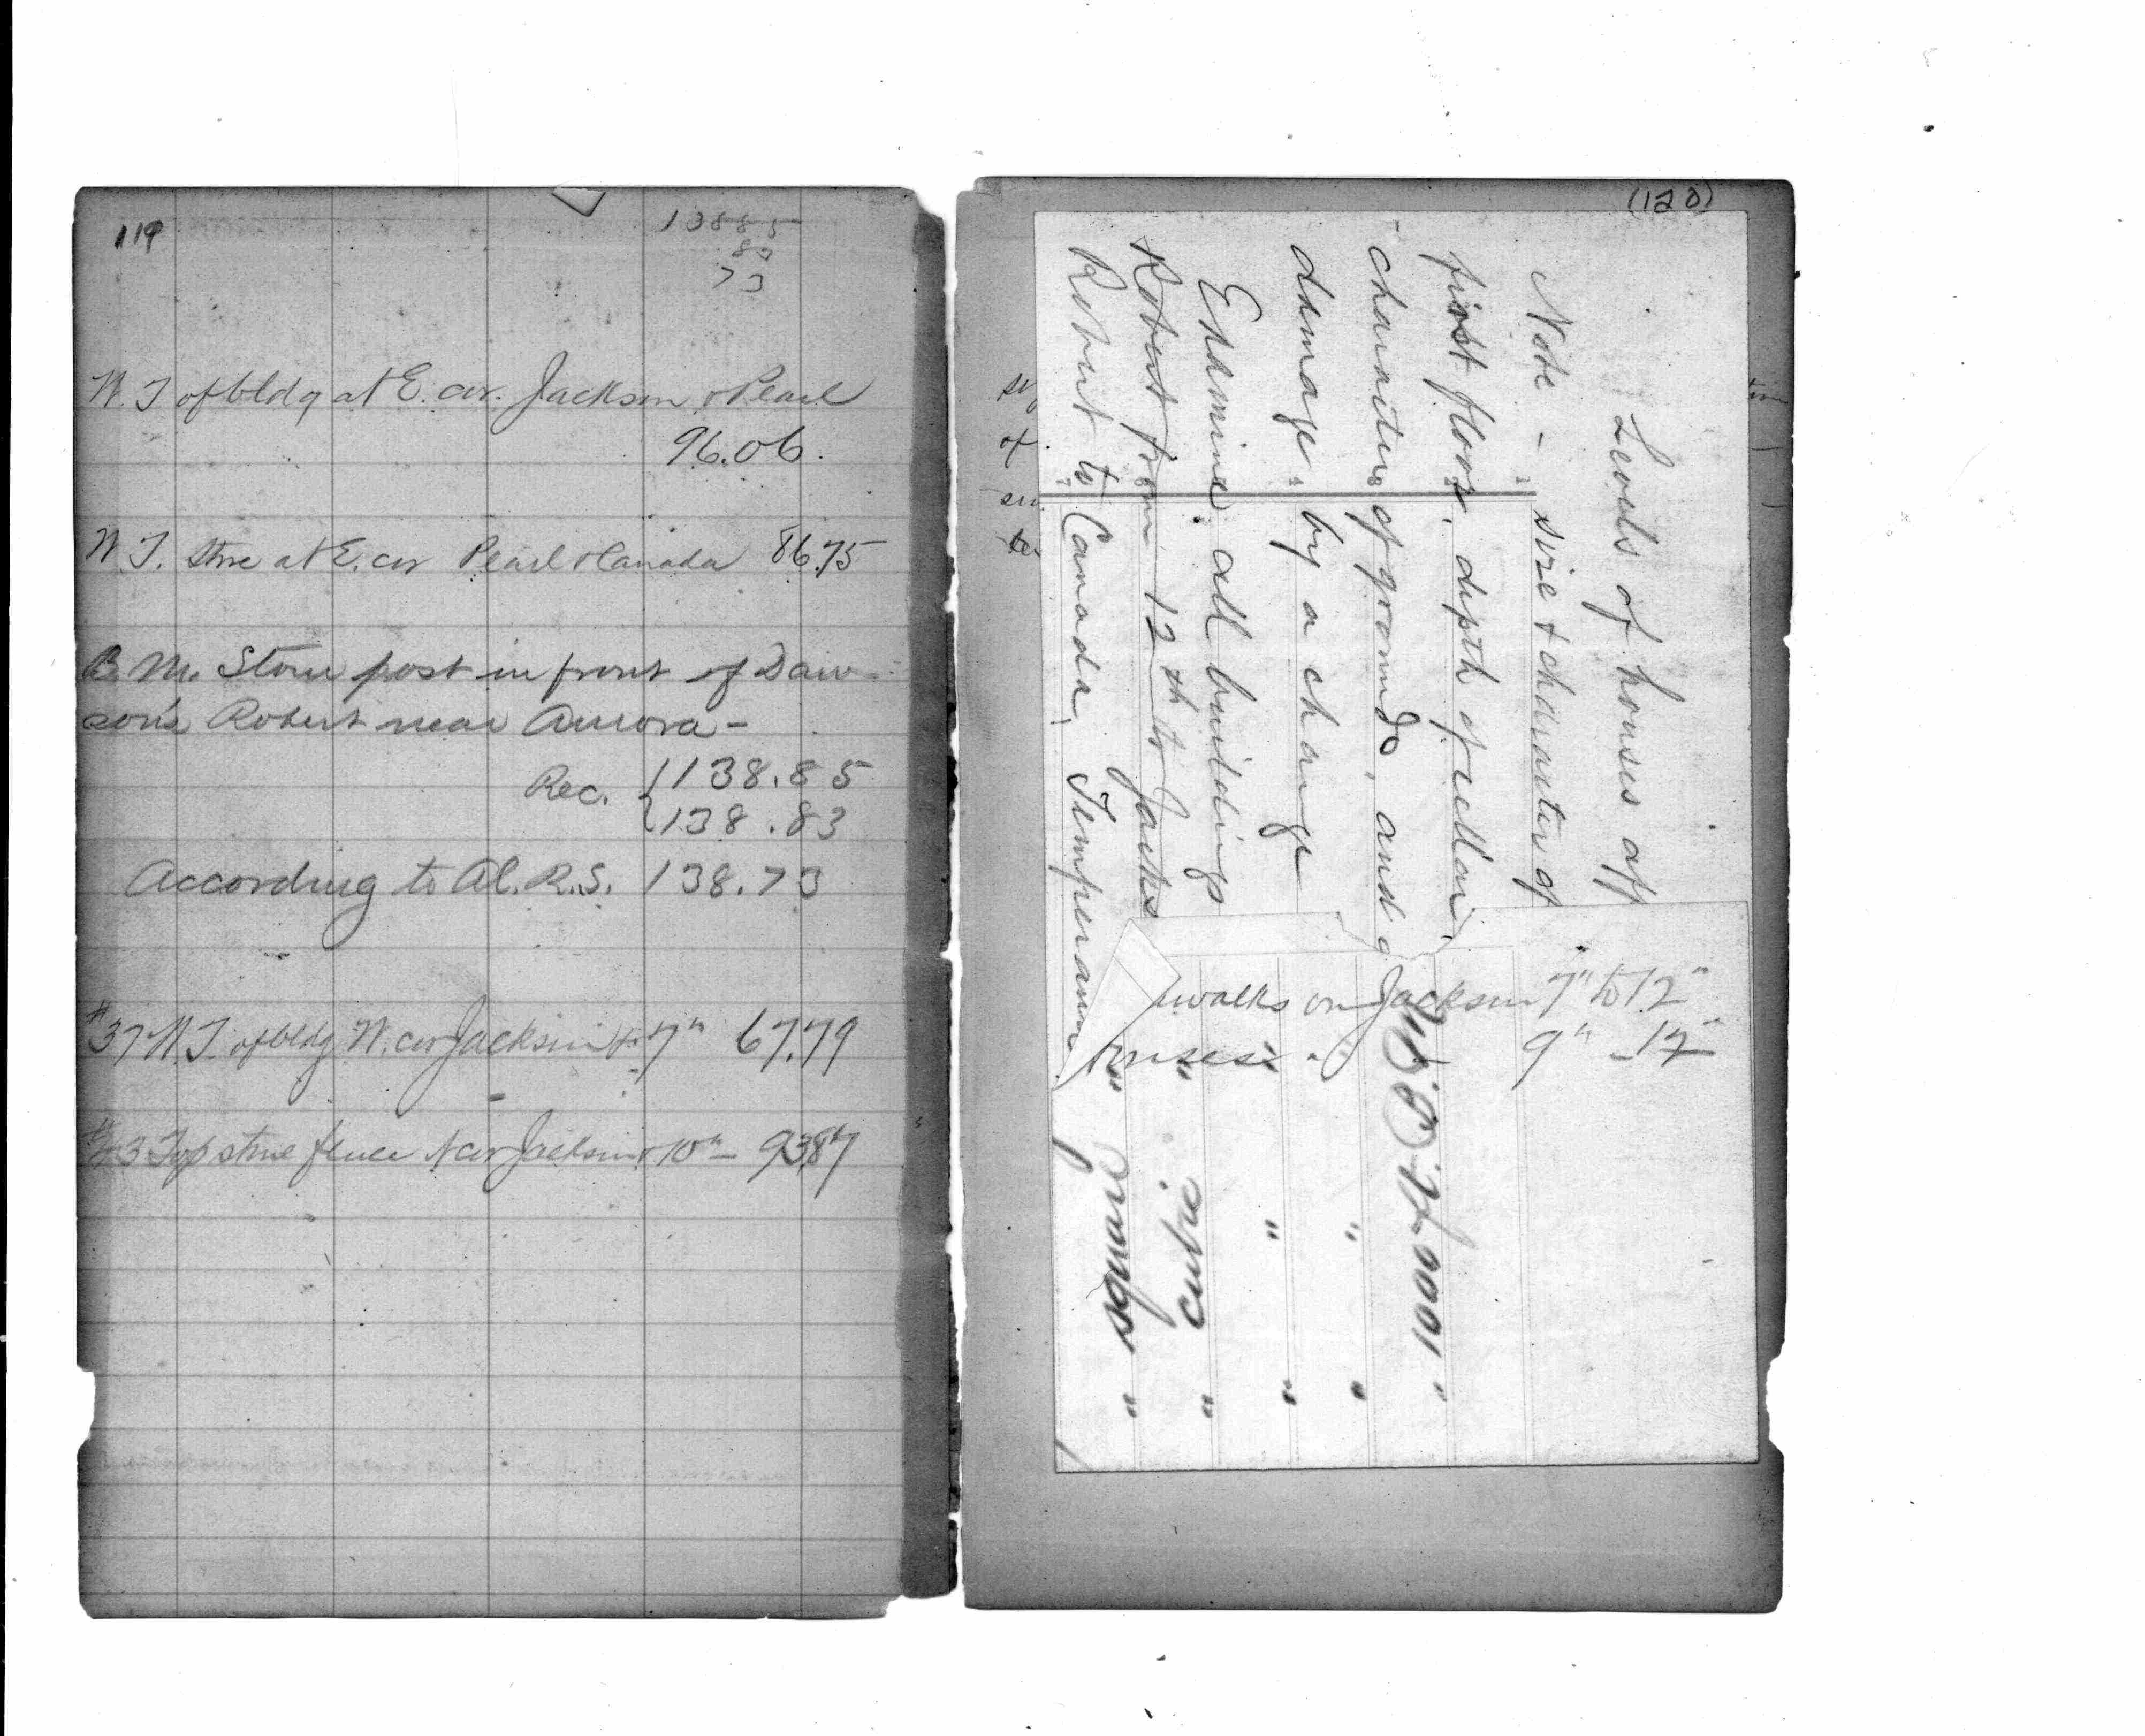 119
13885
83
73
W. T of bldg at E. cor. Jackson & Pearl
96.06.
W T. Stone at E. cor Pearl & Canada 86.75
B. M. Stone post in front of Daw-
son's Robert near Aurora -
Rec. 138.85
138.83
According to Al. R.S. 138.73
#37 W T of bldg W. cor Jackson & 7th 67.79
Top stone fence N cor Jackson & 10th - 93.87
(120)
Levels of houses aff
Note - size & character of
first floor, depth of cellar,
character of ground, and
damage by a change
Examine all buildings
Robert from 12th to Jacks
Robert to Canada, Temperance
walks on Jackson 7th to 12th
" 9th - 12th
1000 ft. B.M.
" " "
" " "
" cubic "
" "
of